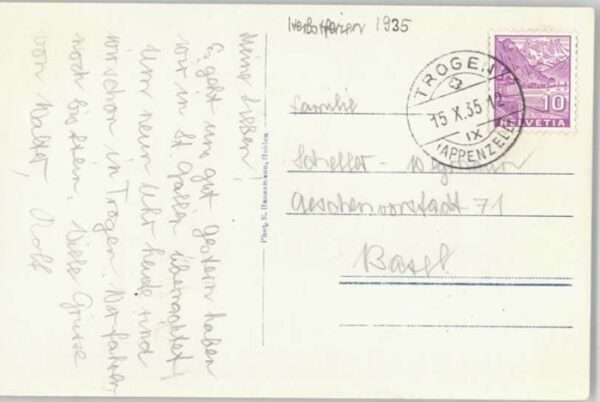 Herbstferien 1935
Meine Lieben!
Es geht uns gut. Gestern haben
wir in St. Gallen übernachtet.
Um neun Uhr heute sind
wir schon in Trogen. Wir fahren
noch Viele Grüsse
von Walter, Rolf
Phot. E. Hausamann, Heiden
TROGEN
15 X.35 12
IX
(APPENZELL)
10
HELVETIA
Familie
Aeschenvorstadt 71
Basel